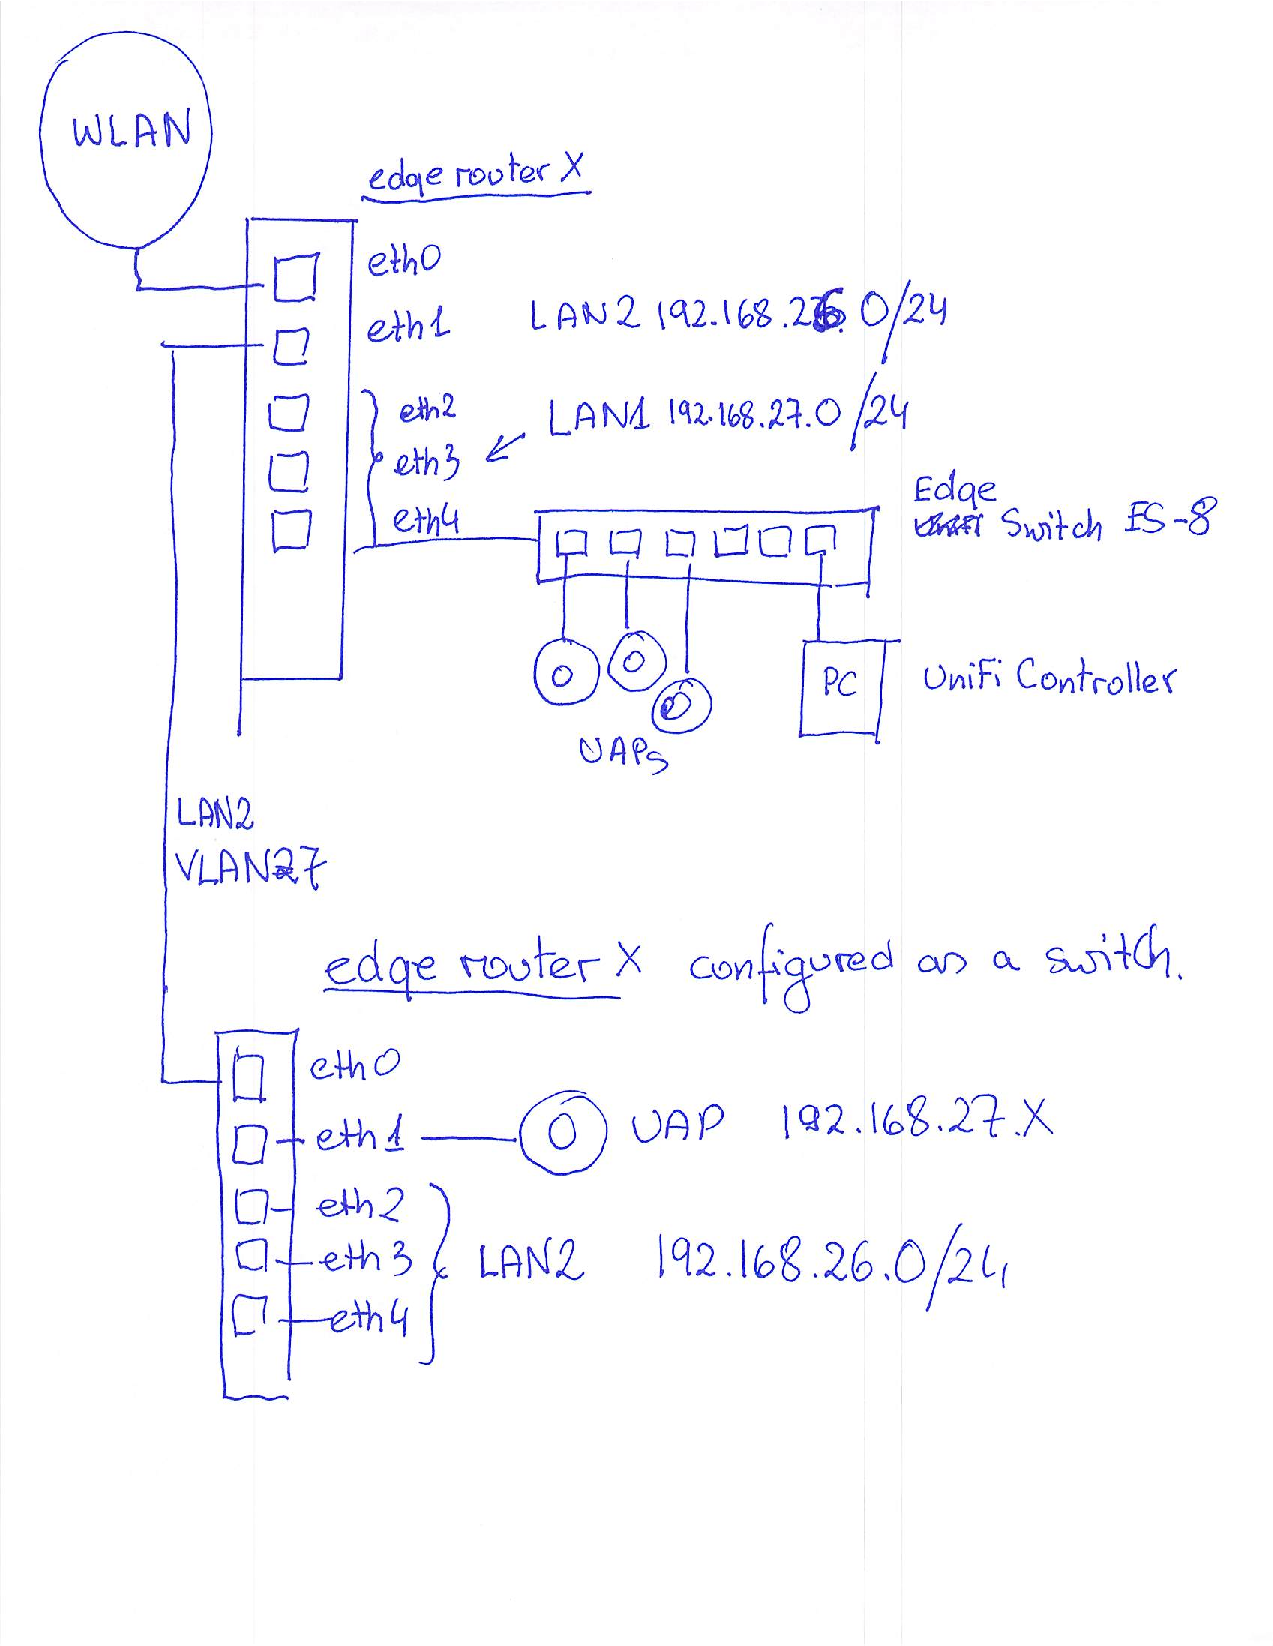 WLAN
edge router X
eth0
eth1 LAN2 192.168.26.0/24
eth2 LAN1 192.168.27.0/24
eth3
eth4
Edge
Switch ES-8
PC UniFi Controller
UAPs
LAN2
VLAN27
edge router X configured as a switch.
eth0
eth1 UAP 192.168.27.X
eth2
eth3 LAN2 192.168.26.0/24
eth4